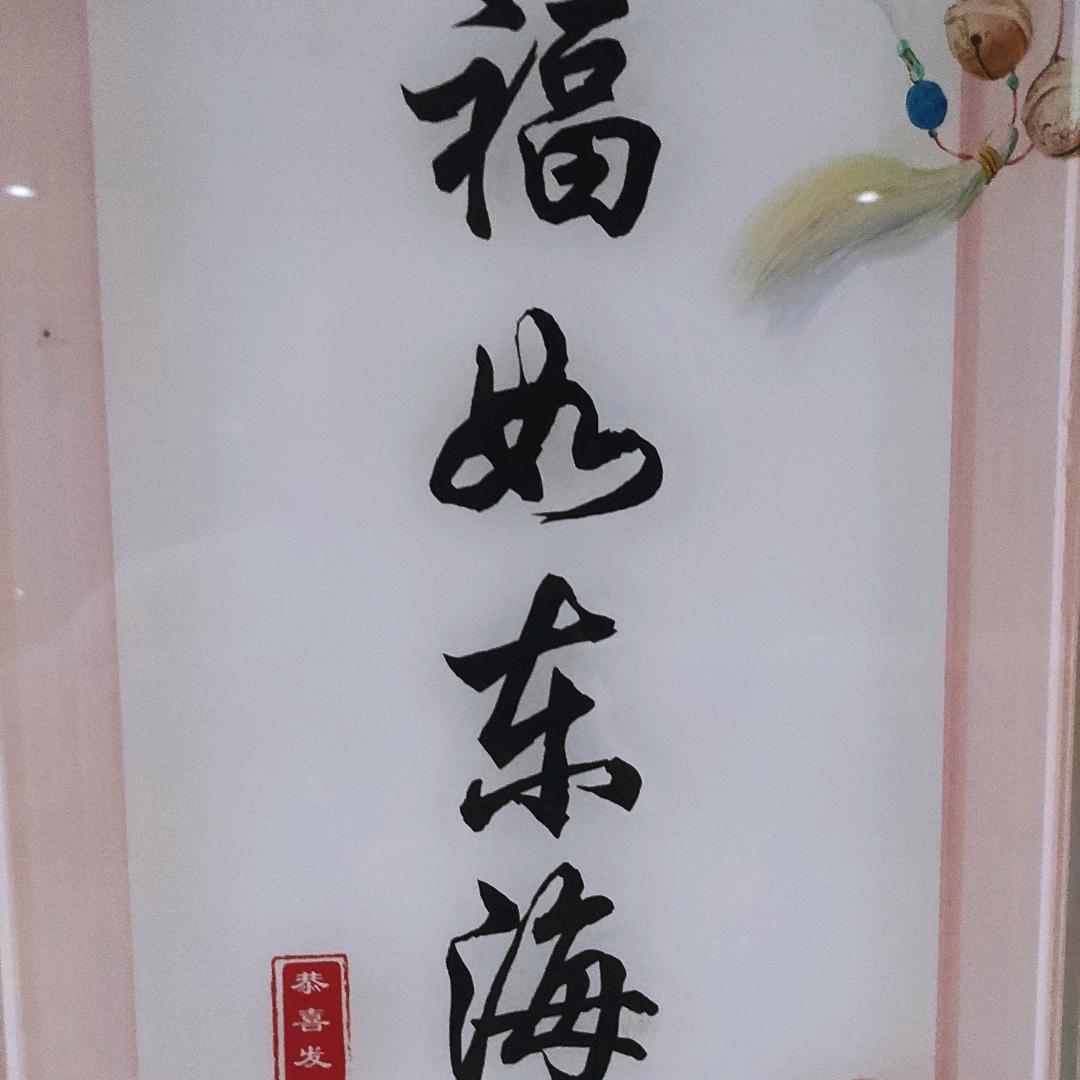 福如东海
恭喜发